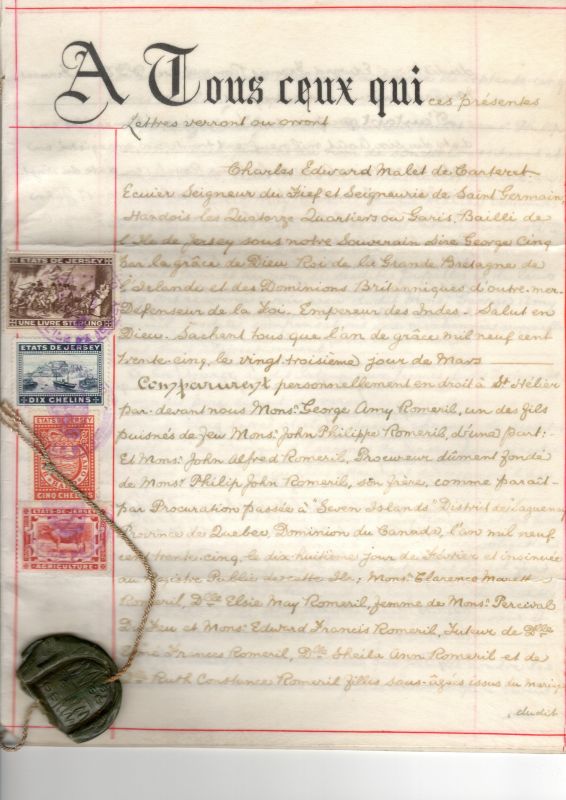 A Tous ceux qui ces présentes
Lettres verront ou orront
Charles Edward Malet de Carteret
Ecuier Seigneur du Fief et Seigneurie de Saint Germain,
Handois les Quatorze Quartiers ou Garis, Bailli de
l'Ile de Jersey sous notre Souverain Sire George Cinq
par la grâce de Dieu Roi de la Grande Bretagne de
l'Irlande et des Dominions Britanniques d'outre-mer.
Défenseur de la Foi. Empereur des Indes. Salut en
Dieu. Sachent tous que l'an de grâce mil neuf cent
trente-cinq, le vingt-troisième jour de Mars
Comparurent personnellement en droit à St Hélier
par-devant nous Monsr. George Amy Romeril, un des fils
puisnés de feu Monsr. John Philippe Romeril, d'une part:-
Et Monsr. John Alfred Romeril, Procureur dûment fondé
de Monsr. Philip John Romeril, son frère, comme paraît
par Procuration passée à "Seven Islands" District de Saguenay
Province de Quebec, Dominion du Canada, l'an mil neuf
cent trente-cinq, le dix huitième jour de Février et insinuée
au Registre Public de cette Ile; Monsr. Clarence Marett
Romeril, Dlle Elsie May Romeril, femme de Monsr. Percival
Du Feu et Monsr. Edward Francis Romeril, Tuteur de Dlle
Frances Romeril, Dlle Sheila Ann Romeril et de
Dlle Ruth Constance Romeril filles sous-âgées issus du mariage
dudit
ETATS DE JERSEY
UNE LIVRE STERLING
ETATS DE JERSEY
DIX CHELINS
ETATS DE JERSEY
CINQ CHELINS
AGRICULTURE